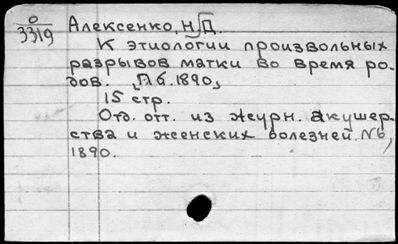 О
3319
Алексенко, Н. Д.
К этиологии произвольных
разрывов матки во время ро-
дов. П.б. 1890,
15 стр.
Отд. отт. из журн. акушер-
ства и женских болезней. №6,
1890.